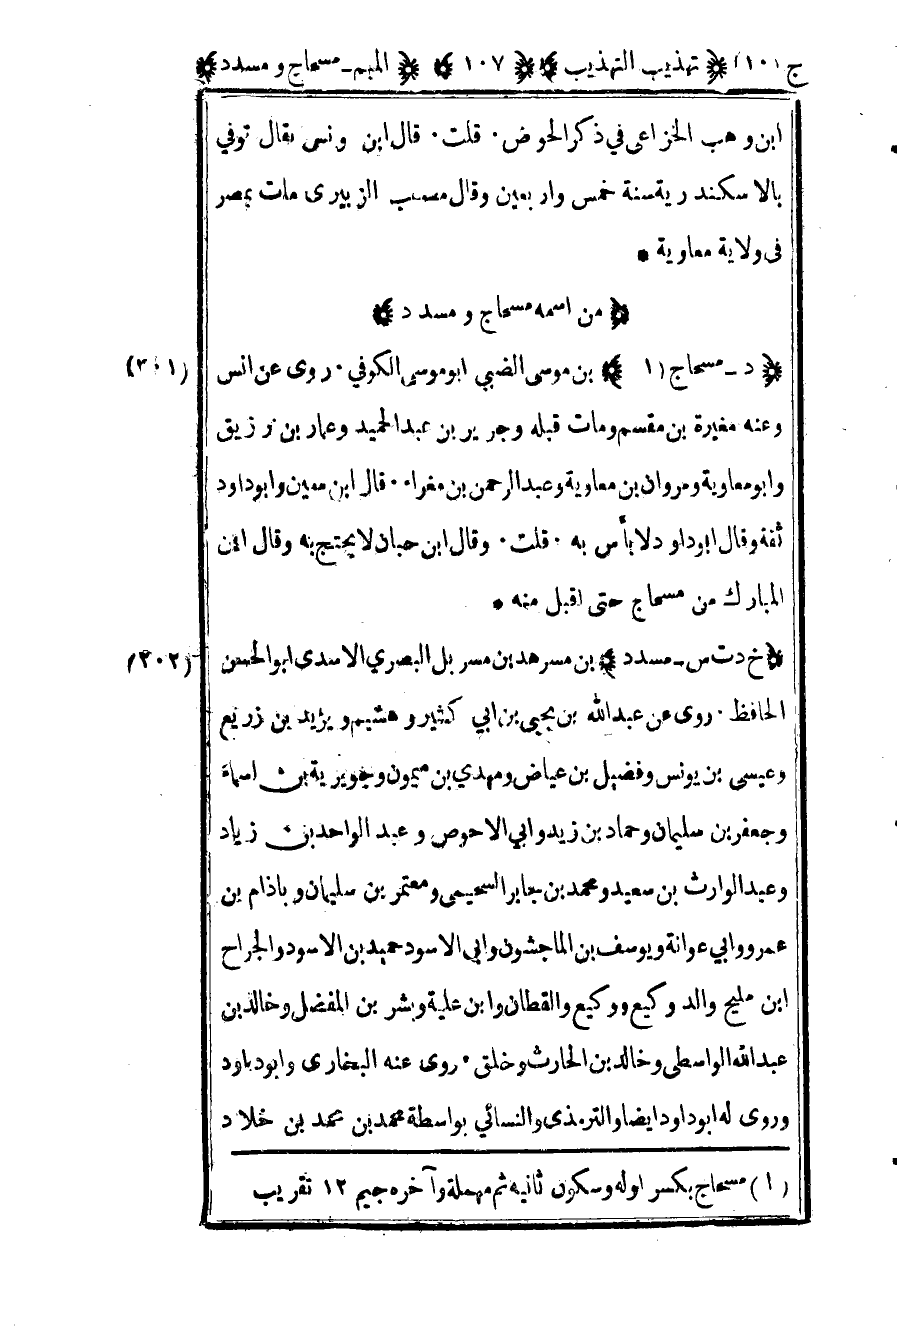 ج (١٠) ﴿ تهذيب التهذيب ﴾ ﴿ ١٠٧ ﴾ ﴿ الميم ـ مسحاج و مسدد ﴾
ابن و هب الخزاعى في ذكر الحوض ٠ قلت ٠ قال ابن يونس يقال توفي
بالاسكندرية سنة خمس واربعين وقال مصعب الزبيرى مات بمصر
فى ولاية معاوية *
﴿ من اسمه مسحاج و مسدد ﴾
(٢٠١) ﴿ د ـ مسحاج (١ ﴾ بن موسى الضبي ابوموسى الكوفي ٠ روى عن انس
وعنه مغيرة بن مقسم ومات قبله وجرير بن عبدالحميد وعمار بن زريق
وابومعاوية ومروان بن معاوية وعبدالرحمن بن مغراء ٠ قال ابن معين وابوداود
ثقة وقال ابوداود لا بأس به ٠ قلت ٠ وقال ابن حبان لا يحتج به وقال ابن
المبارك من مسحاج حتى اقبل منه *
(٢٠٢) ﴿ خ د ت س ـ مسدد ﴾ بن مسرهد بن مسربل البصري الاسدى ابوالحسن
الحافظ ٠ روى عن عبدالله بن يحيى بن ابي كثير و هشيم و يزيد بن زريع
وعيسى بن يونس وفضيل بن عياض ومهدي بن ميمون وجويرية بن اسماء
وجعفر بن سليمان وحماد بن زيد وابي الاحوص و عبد الواحد بن زياد
وعبدالوارث بن سعيد ومحمد بن جابر السحيمى ومعتمر بن سليمان و باذام بن
عمرو وابي عوانة ويوسف بن الماجشون وابى الاسود حميد بن الاسود والجراح
ابن مليح والد وكيع ووكيع والقطان وابن علية وبشر بن المفضل وخالد بن
عبدالله الواسطى وخالد بن الحارث وخلق ٠ روى عنه البخارى وابوداود
وروى له ابوداود ايضا والترمذى والنسائي بواسطة محمد بن محمد بن خلاد
(١) مسحاج بكسر اوله وسكون ثانيه ثم مهملة وآخره جيم ١٢ تقريب